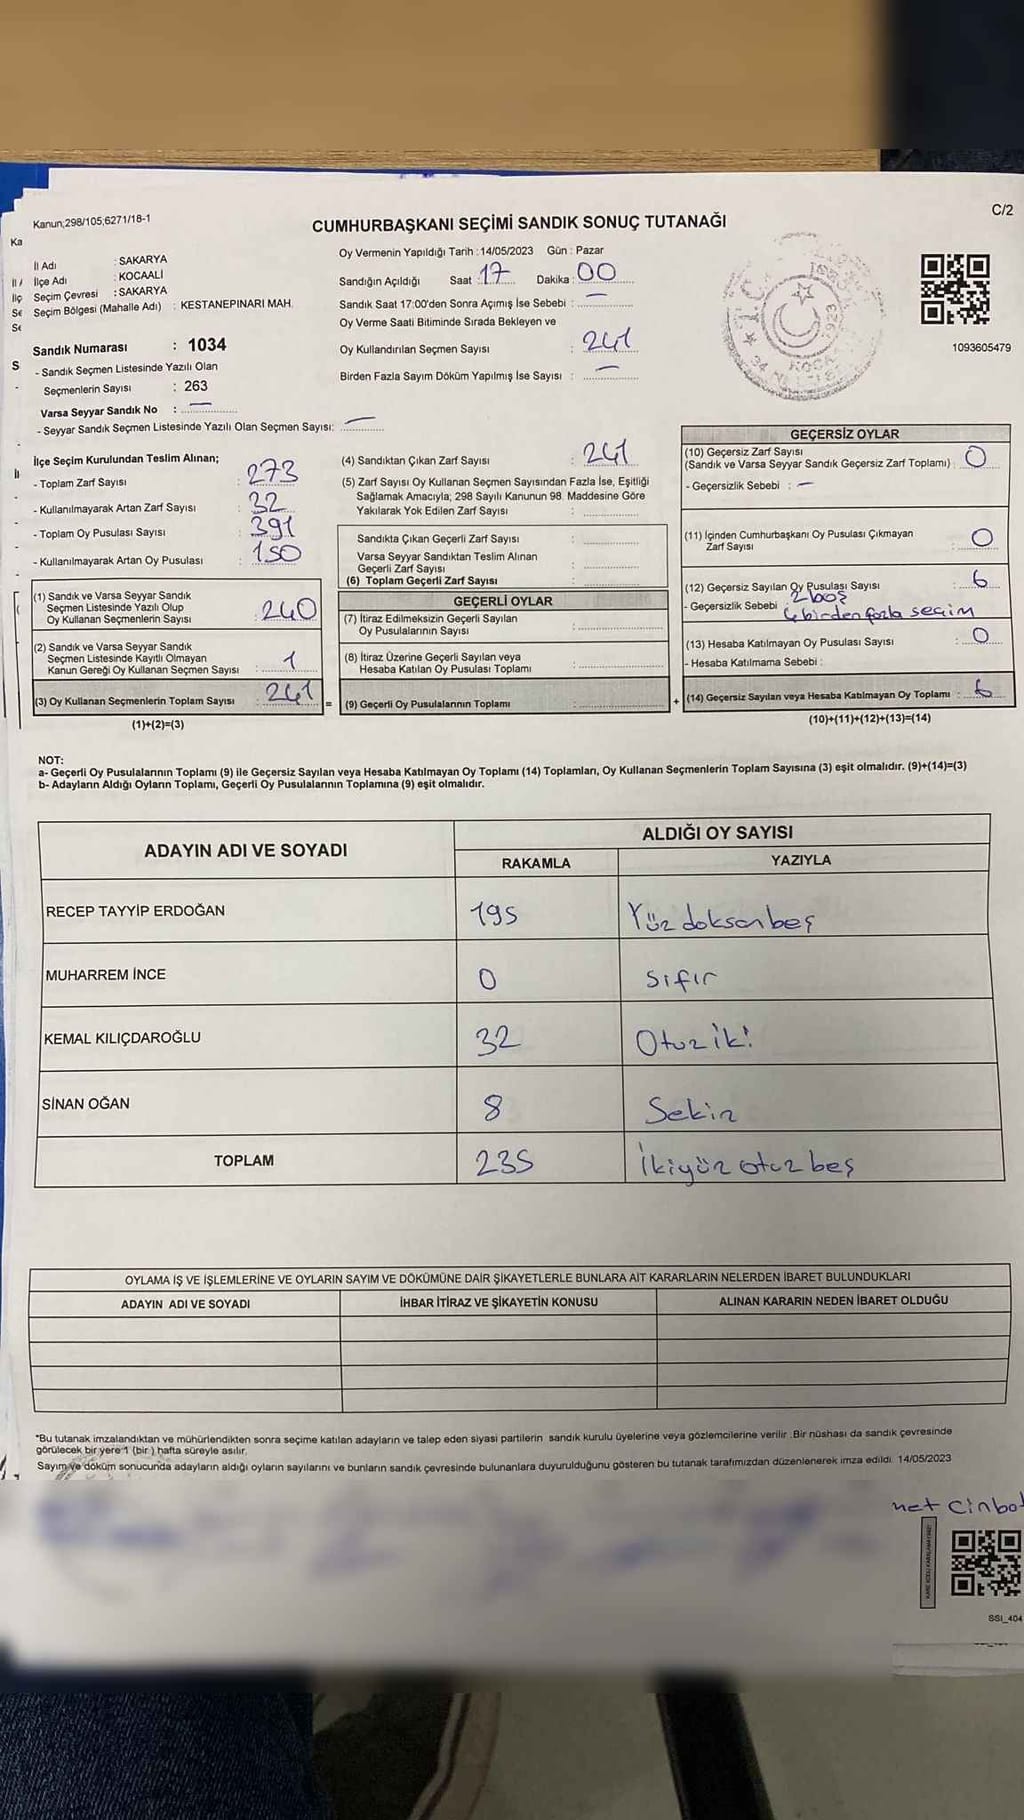 Kanun;298/105;6271/18-1
C/2
CUMHURBAŞKANI SEÇİMİ SANDIK SONUÇ TUTANAĞI
Ka
İl Adı : SAKARYA
İlçe Adı : KOCAALİ
Seçim Çevresi : SAKARYA
Seçim Bölgesi (Mahalle Adı) : KESTANEPINARI MAH.
Sandık Numarası : 1034
- Sandık Seçmen Listesinde Yazılı Olan
Seçmenlerin Sayısı : 263
Varsa Seyyar Sandık No : —
- Seyyar Sandık Seçmen Listesinde Yazılı Olan Seçmen Sayısı: —
Oy Vermenin Yapıldığı Tarih : 14/05/2023 Gün : Pazar
Sandığın Açıldığı Saat : 17 Dakika : 00
Sandık Saat 17:00'den Sonra Açımış İse Sebebi : —
Oy Verme Saati Bitiminde Sırada Bekleyen ve
Oy Kullandırılan Seçmen Sayısı : 241
Birden Fazla Sayım Döküm Yapılmış İse Sayısı : —
1093605479
İlçe Seçim Kurulundan Teslim Alınan;
- Toplam Zarf Sayısı : 273
- Kullanılmayarak Artan Zarf Sayısı : 32
- Toplam Oy Pusulası Sayısı : 391
- Kullanılmayarak Artan Oy Pusulası : 150
(1) Sandık ve Varsa Seyyar Sandık
Seçmen Listesinde Yazılı Olup
Oy Kullanan Seçmenlerin Sayısı : 240
(2) Sandık ve Varsa Seyyar Sandık
Seçmen Listesinde Kayıtlı Olmayan
Kanun Gereği Oy Kullanan Seçmen Sayısı : 1
(3) Oy Kullanan Seçmenlerin Toplam Sayısı : 241
(1)+(2)=(3)
(4) Sandıktan Çıkan Zarf Sayısı : 241
(5) Zarf Sayısı Oy Kullanan Seçmen Sayısından Fazla İse, Eşitliği
Sağlamak Amacıyla; 298 Sayılı Kanunun 98. Maddesine Göre
Yakılarak Yok Edilen Zarf Sayısı :
Sandıkta Çıkan Geçerli Zarf Sayısı :
Varsa Seyyar Sandıktan Teslim Alınan
Geçerli Zarf Sayısı :
(6) Toplam Geçerli Zarf Sayısı :
= GEÇERLİ OYLAR
(7) İtiraz Edilmeksizin Geçerli Sayılan
Oy Pusulalarının Sayısı :
(8) İtiraz Üzerine Geçerli Sayılan veya
Hesaba Katılan Oy Pusulası Toplamı :
(9) Geçerli Oy Pusulalarının Toplamı :
+ GEÇERSİZ OYLAR
(10) Geçersiz Zarf Sayısı
(Sandık ve Varsa Seyyar Sandık Geçersiz Zarf Toplamı) : 0
- Geçersizlik Sebebi : —
(11) İçinden Cumhurbaşkanı Oy Pusulası Çıkmayan
Zarf Sayısı : 0
(12) Geçersiz Sayılan Oy Pusulası Sayısı : 6
2 boş
- Geçersizlik Sebebi : 4 birden fazla seçim
(13) Hesaba Katılmayan Oy Pusulası Sayısı : 0
- Hesaba Katılmama Sebebi :
(14) Geçersiz Sayılan veya Hesaba Katılmayan Oy Toplamı : 6
(10)+(11)+(12)+(13)=(14)
NOT:
a- Geçerli Oy Pusulalarının Toplamı (9) ile Geçersiz Sayılan veya Hesaba Katılmayan Oy Toplamı (14) Toplamları, Oy Kullanan Seçmenlerin Toplam Sayısına (3) eşit olmalıdır. (9)+(14)=(3)
b- Adayların Aldığı Oyların Toplamı, Geçerli Oy Pusulalarının Toplamına (9) eşit olmalıdır.
ADAYIN ADI VE SOYADI
ALDIĞI OY SAYISI
RAKAMLA YAZIYLA
RECEP TAYYİP ERDOĞAN 195 Yüz doksan beş
MUHARREM İNCE 0 Sıfır
KEMAL KILIÇDAROĞLU 32 Otuz iki
SİNAN OĞAN 8 Sekiz
TOPLAM 235 İkiyüz otuz beş
OYLAMA İŞ VE İŞLEMLERİNE VE OYLARIN SAYIM VE DÖKÜMÜNE DAİR ŞİKAYETLERLE BUNLARA AİT KARARLARIN NELERDEN İBARET BULUNDUKLARI
ADAYIN ADI VE SOYADI İHBAR İTİRAZ VE ŞİKAYETİN KONUSU ALINAN KARARIN NEDEN İBARET OLDUĞU
*Bu tutanak imzalandıktan ve mühürlendikten sonra seçime katılan adayların ve talep eden siyasi partilerin sandık kurulu üyelerine veya gözlemcilerine verilir .Bir nüshası da sandık çevresinde
görülecek bir yere 1 (bir ) hafta süreyle asılır.
Sayım ve döküm sonucunda adayların aldığı oyların sayılarını ve bunların sandık çevresinde bulunanlara duyurulduğunu gösteren bu tutanak tarafımızdan düzenlenerek imza edildi. 14/05/2023
net Cinbo
SSI_404